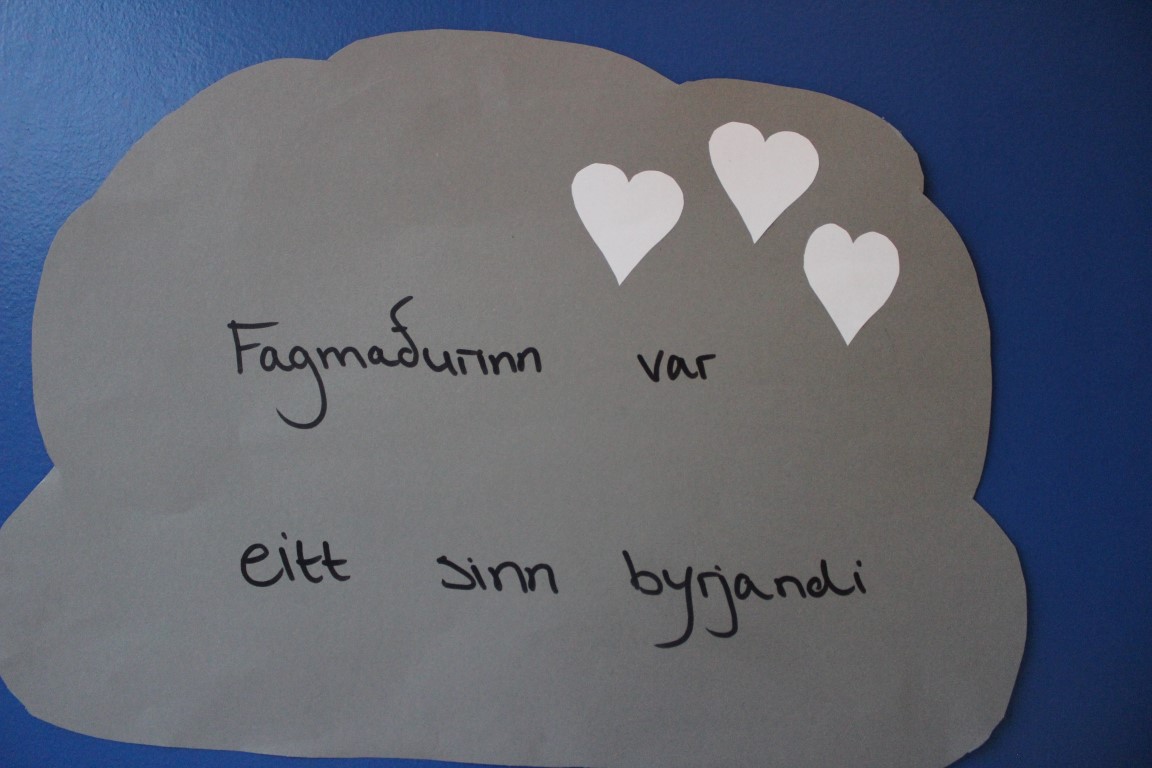 Fagmaðurinn var
eitt sinn byrjandi